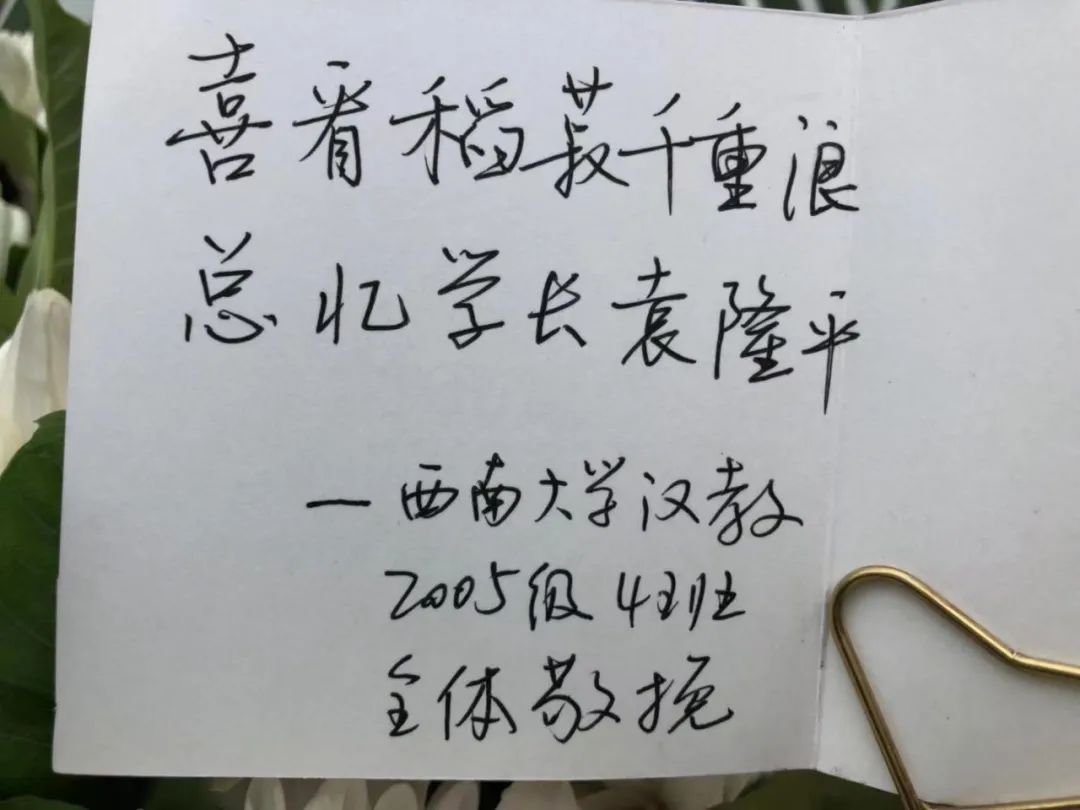 喜看稻菽千重浪
总忆学长袁隆平
—西南大学汉教
2005级4班
全体敬挽